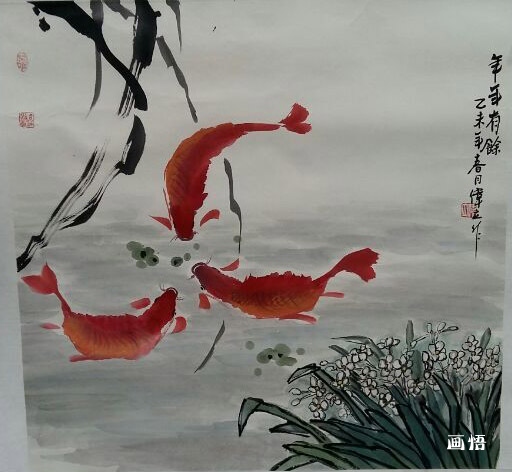 年年有餘
乙未年春日偉立作
画悟